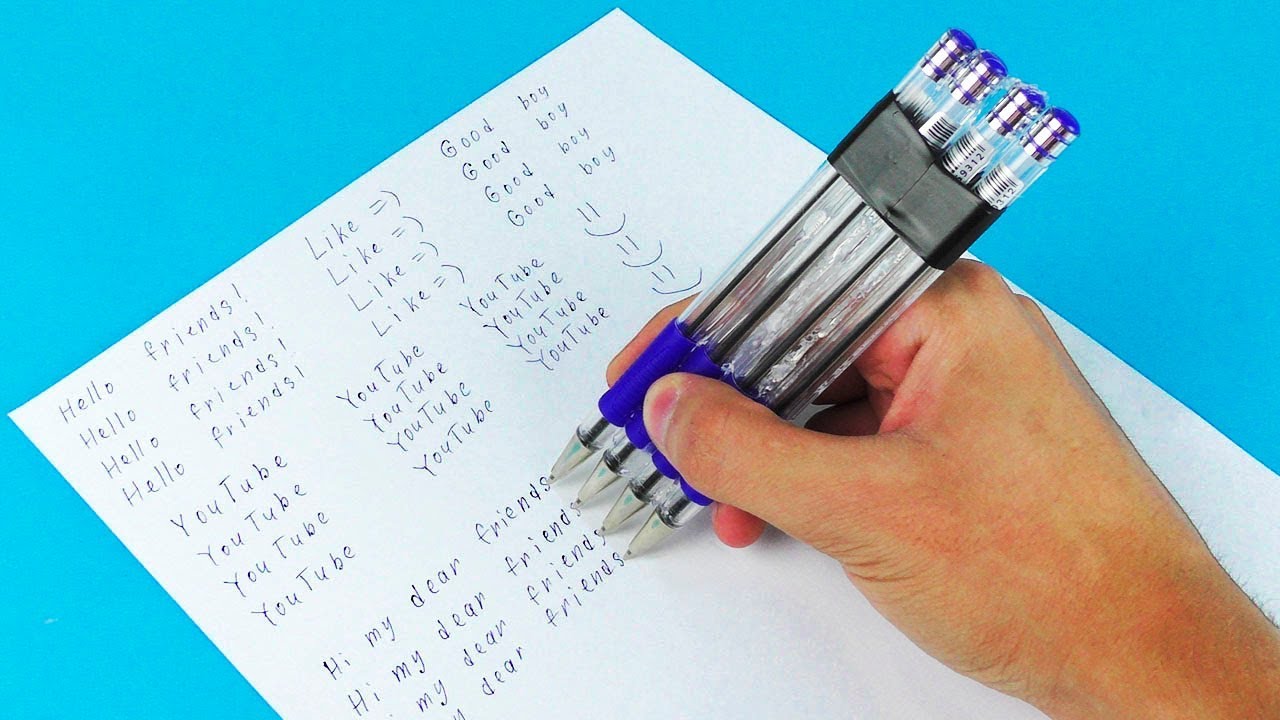 Hello friends! Like =) Good boy
Hello friends! Like =) Good boy
Hello friends! Like =) Good boy
Hello friends! Like =) Good boy
YouTube YouTube YouTube
YouTube YouTube YouTube
YouTube YouTube YouTube
YouTube YouTube YouTube
Hi my dear friends
Hi my dear friends
my dear friends
dear friends